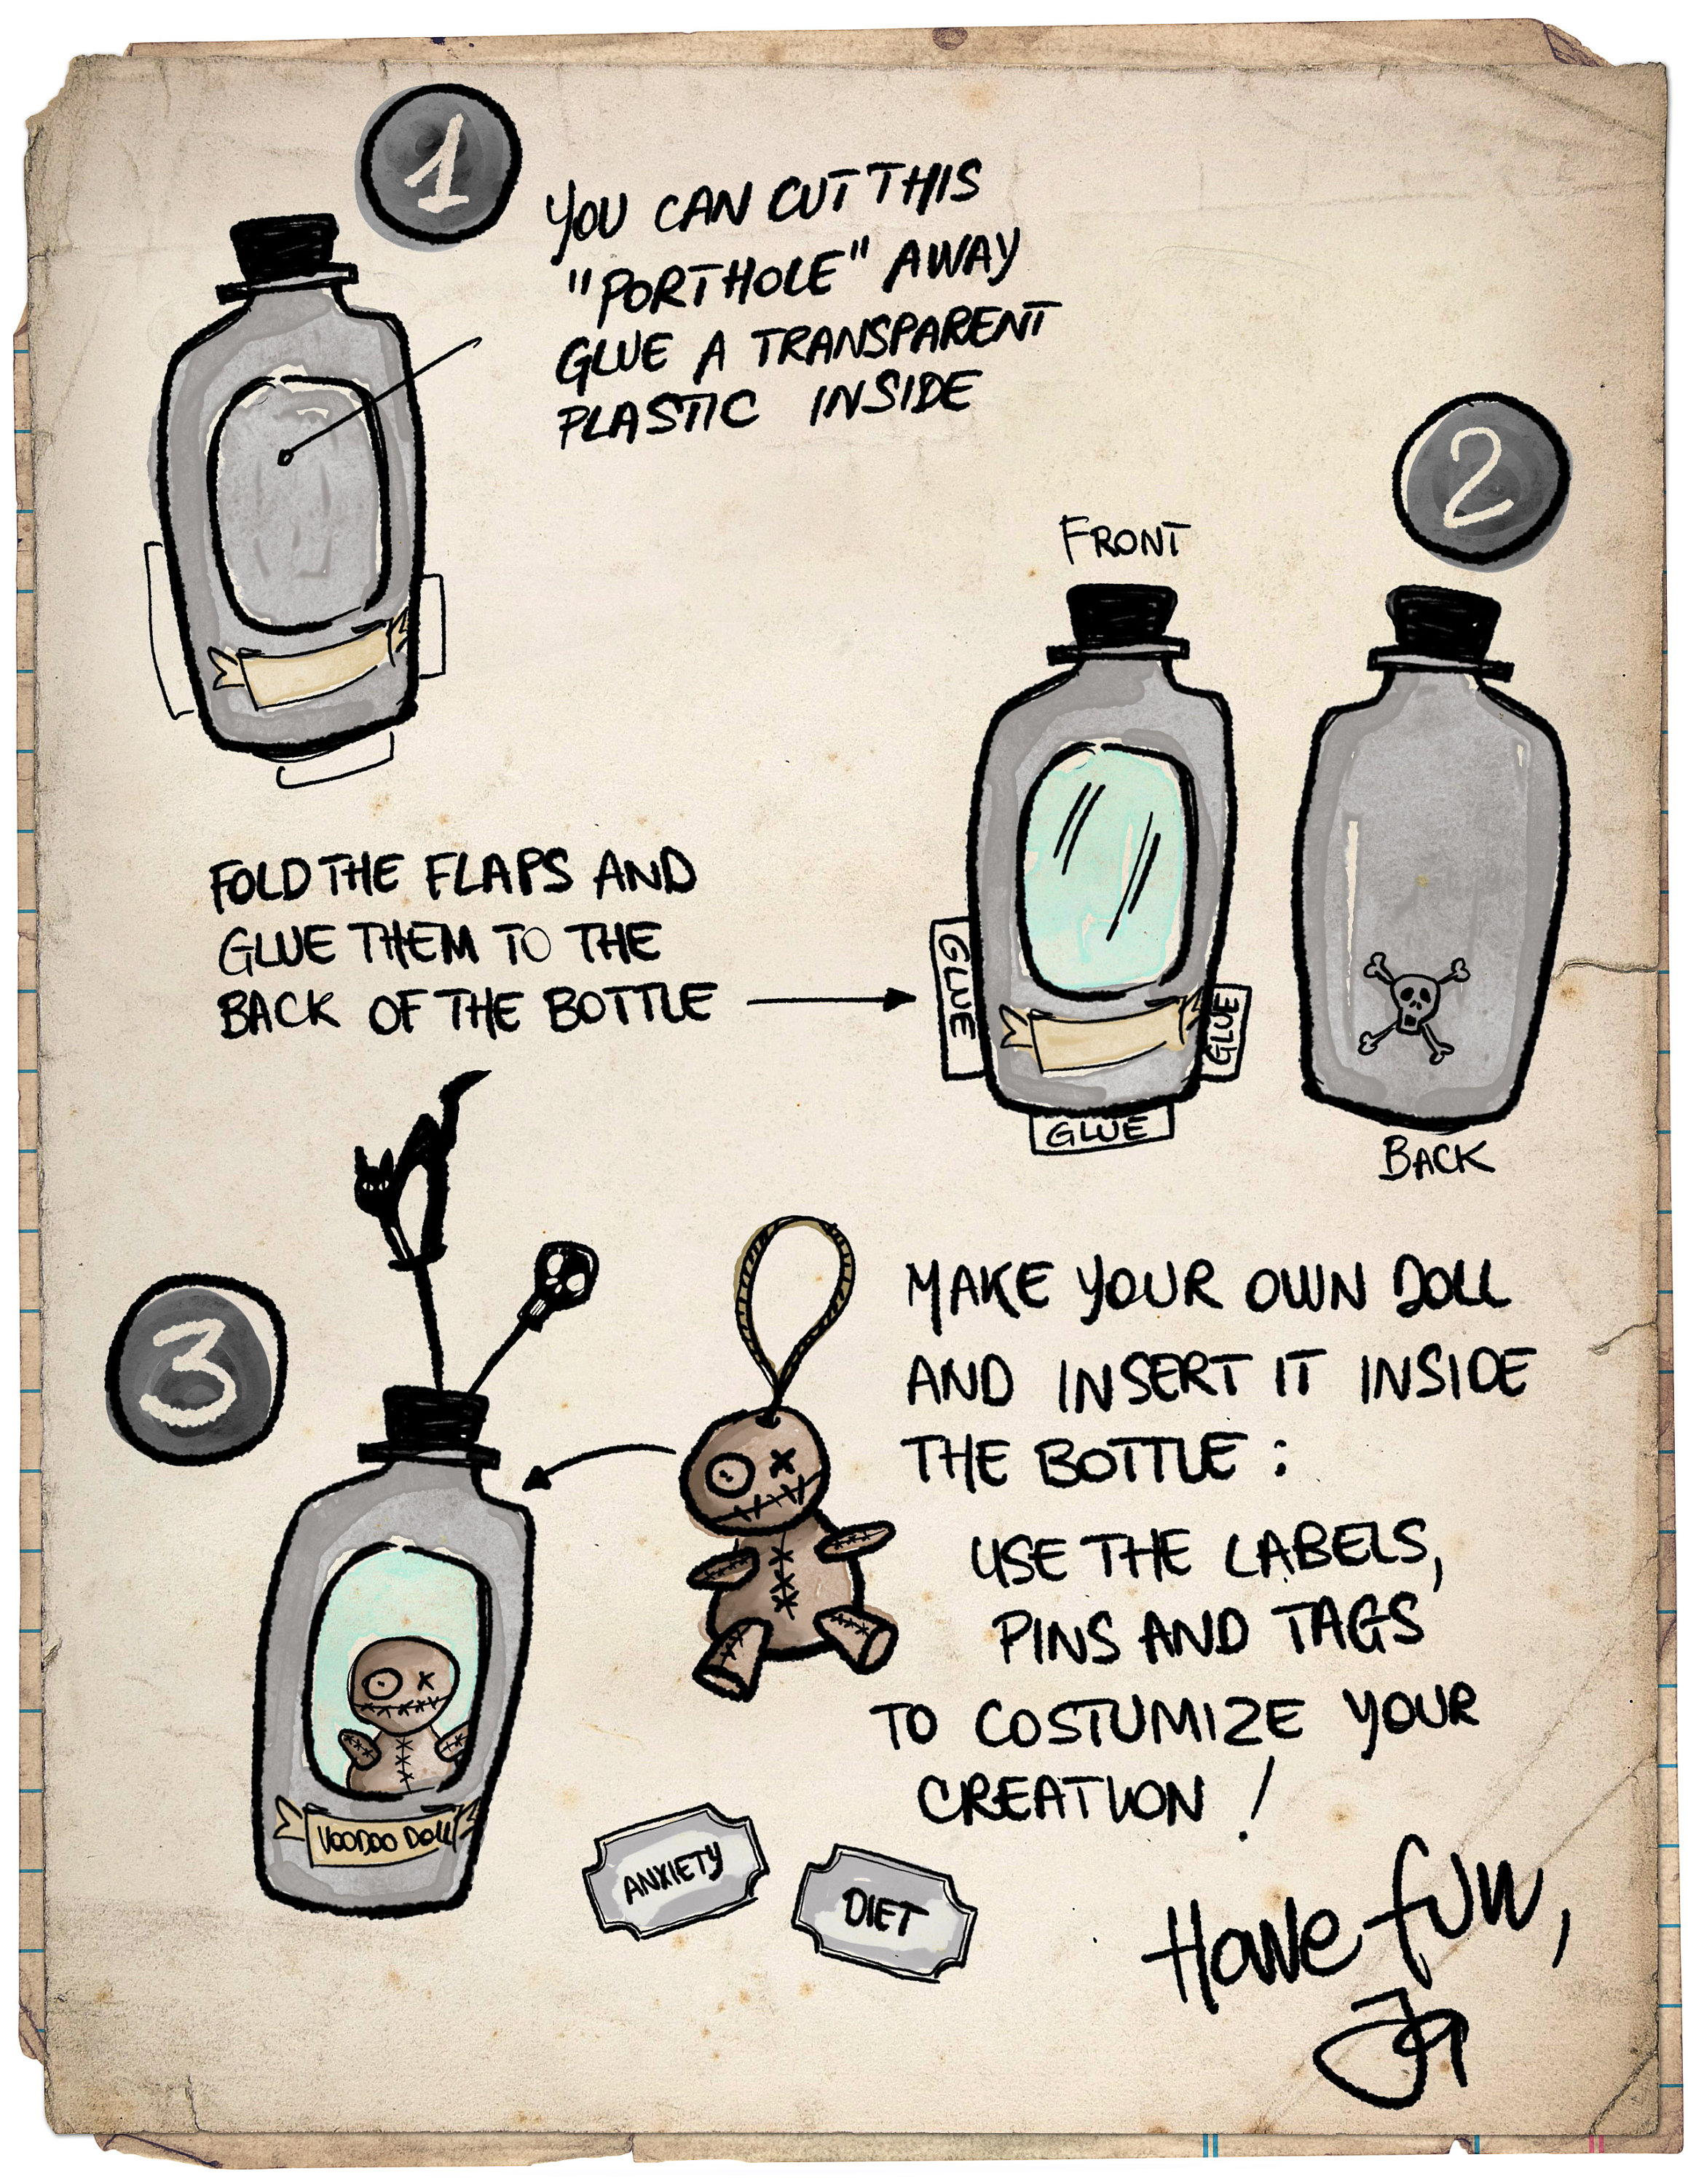 1
YOU CAN CUT THIS
"PORTHOLE" AWAY
GLUE A TRANSPARENT
PLASTIC INSIDE
2
FRONT
FOLD THE FLAPS AND
GLUE THEM TO THE
BACK OF THE BOTTLE
GLUE
GLUE
GLUE
BACK
3
MAKE YOUR OWN DOLL
AND INSERT IT INSIDE
THE BOTTLE :
USE THE LABELS,
PINS AND TAGS
TO COSTUMIZE YOUR
CREATION !
VOODOO DOLL
ANXIETY
DIET
Have fun,